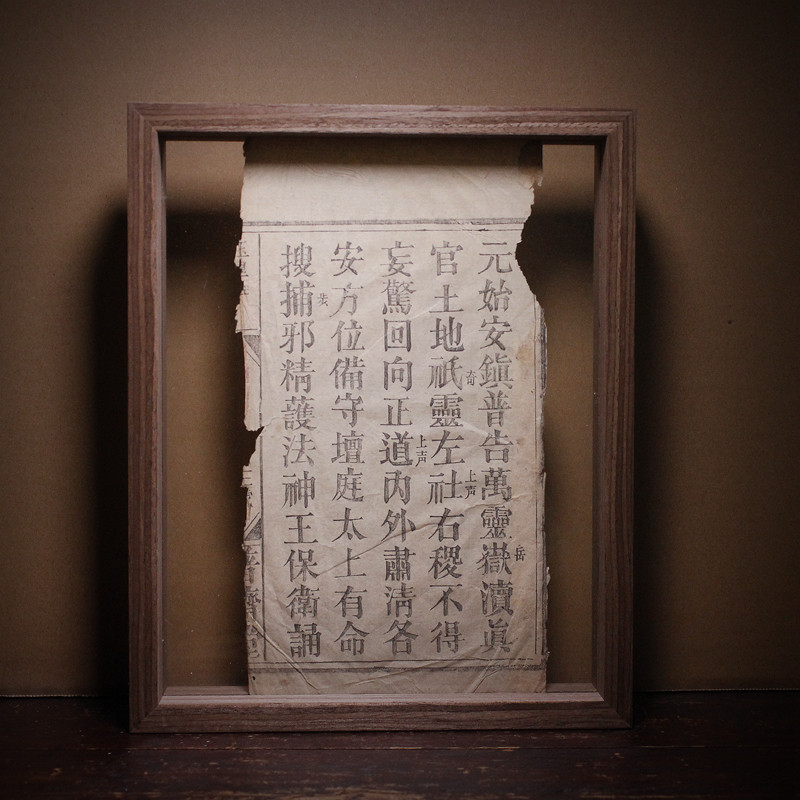 岳
元始安鎮普告萬靈嶽瀆眞
奇
上声
官土地祇靈左社右稷不得
上声
妄驚回向正道內外肅清各
安方位備守壇庭太上有命
搜捕邪精護法神王保衛誦